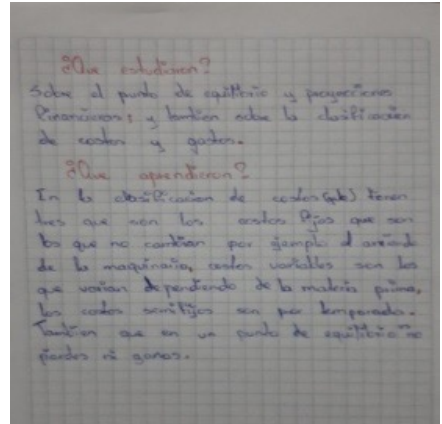 ¿Que estudiaron?
Sobre el punto de equilibrio y proyecciones
financieras; y tambien sobre la clasificación
de costos y gastos.
¿Que aprendieron?
En la clasificación de costos tienen
tres que son los costos fijos que son
los que no cambian por ejemplo el arriendo
de la maquinaria, costos variables son los
que varian dependiendo de la materia prima,
los costos semifijos son por temporada.
Tambien que en un punto de equilibrio no
pierdes ni ganas.